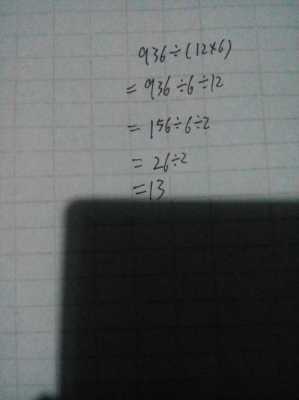 936÷(12×6)
=936÷6÷12
=156÷6÷2
=26÷2
=13